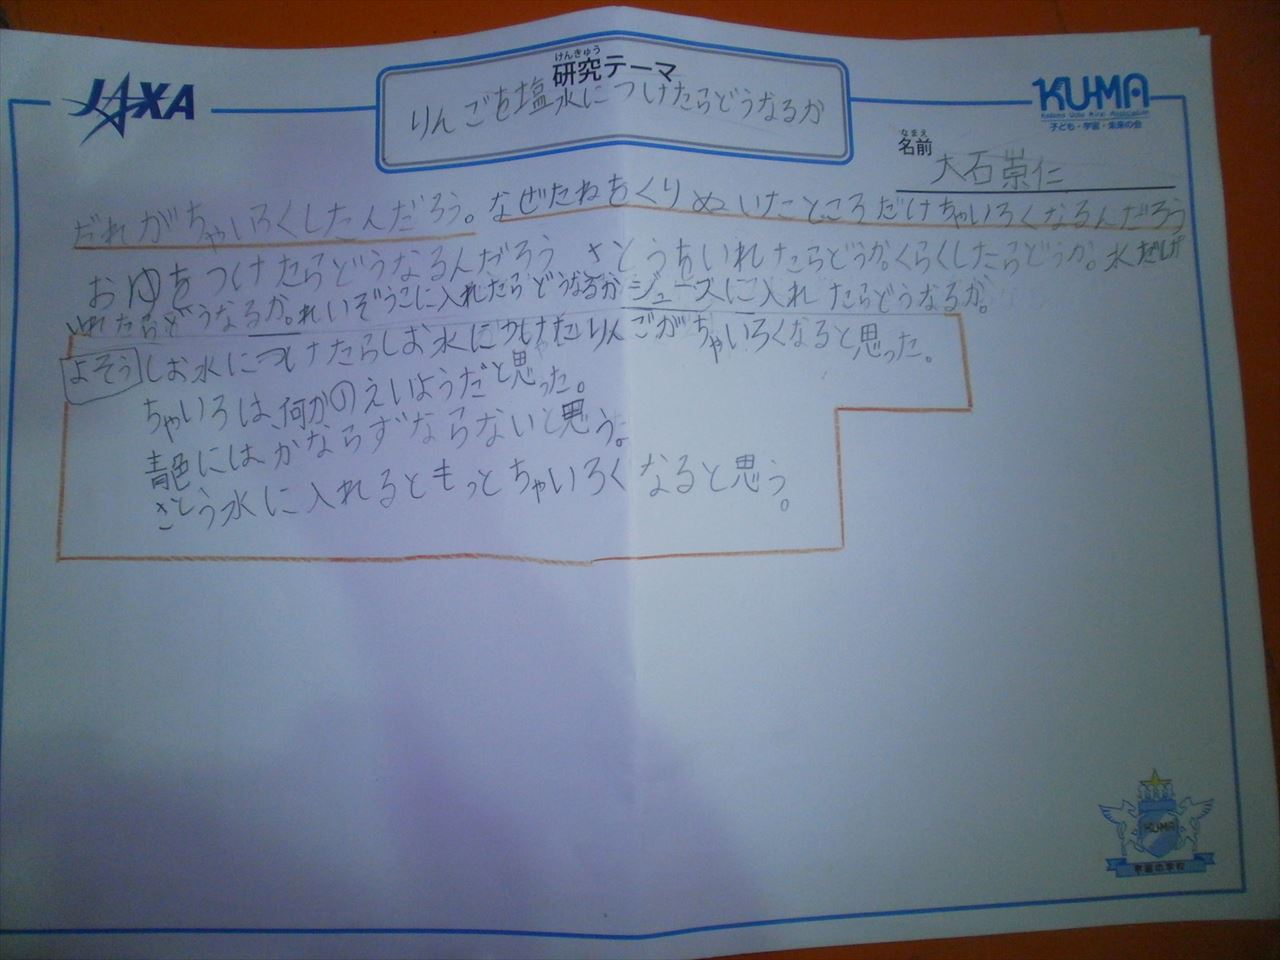 JAXA
けんきゅう
研究テーマ
りんごを塩水につけたらどうなるか
KU-MA
子ども・宇宙・未来の会
なまえ
名前
大石崇仁
だれがちゃいろくしたんだろう。なぜたねをくりぬいたところだけちゃいろくなるんだろう
おゆをつけたらどうなるんだろう さとうをいれたらどうか。くらくしたらどうか。水だけ
いれたらどうなるか。れいぞうこに入れたらどうなるかジュースに入れたらどうなるか。
よそう しお水につけたらしお水につけたりんごがちゃいろくなると思った。
ちゃいろは、何かのえいようだと思った。
青色にはかならずならないと思う。
さとう水に入れるともっとちゃいろくなると思う。
KU-MA
宇宙の学校